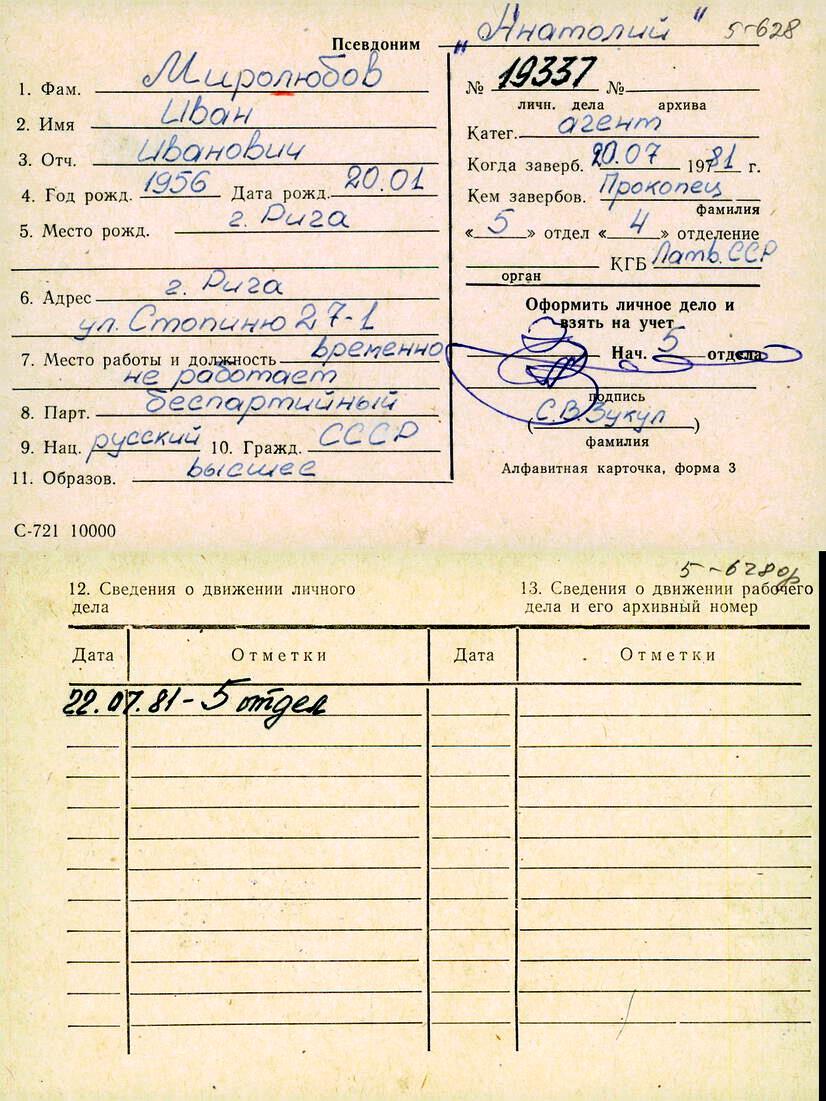 Псевдоним „Анатолий" 5-628
1. Фам. Миролюбов
2. Имя Иван
3. Отч. Иванович
4. Год рожд. 1956 Дата рожд. 20.01
5. Место рожд. г. Рига
6. Адрес г. Рига
ул. Стопиню 27-1
7. Место работы и должность временно
не работает
8. Парт. беспартийный
9. Нац. русский 10. Гражд. СССР
11. Образов. высшее
С-721 10000
№ 19337 №
личн. дела архива
Катег. агент
Когда заверб. 20.07 1981 г.
Кем завербов. Прокопец
фамилия
« 5 » отдел « 4 » отделение
КГБ Латв. ССР
орган
Оформить личное дело и
взять на учет
Нач. 5 отдела
подпись
(С.В. Зукул)
фамилия
Алфавитная карточка, форма 3
5-628ор
12. Сведения о движении личного
дела
13. Сведения о движении рабочего
дела и его архивный номер
Дата Отметки Дата Отметки
22.07.81 - 5 отдел